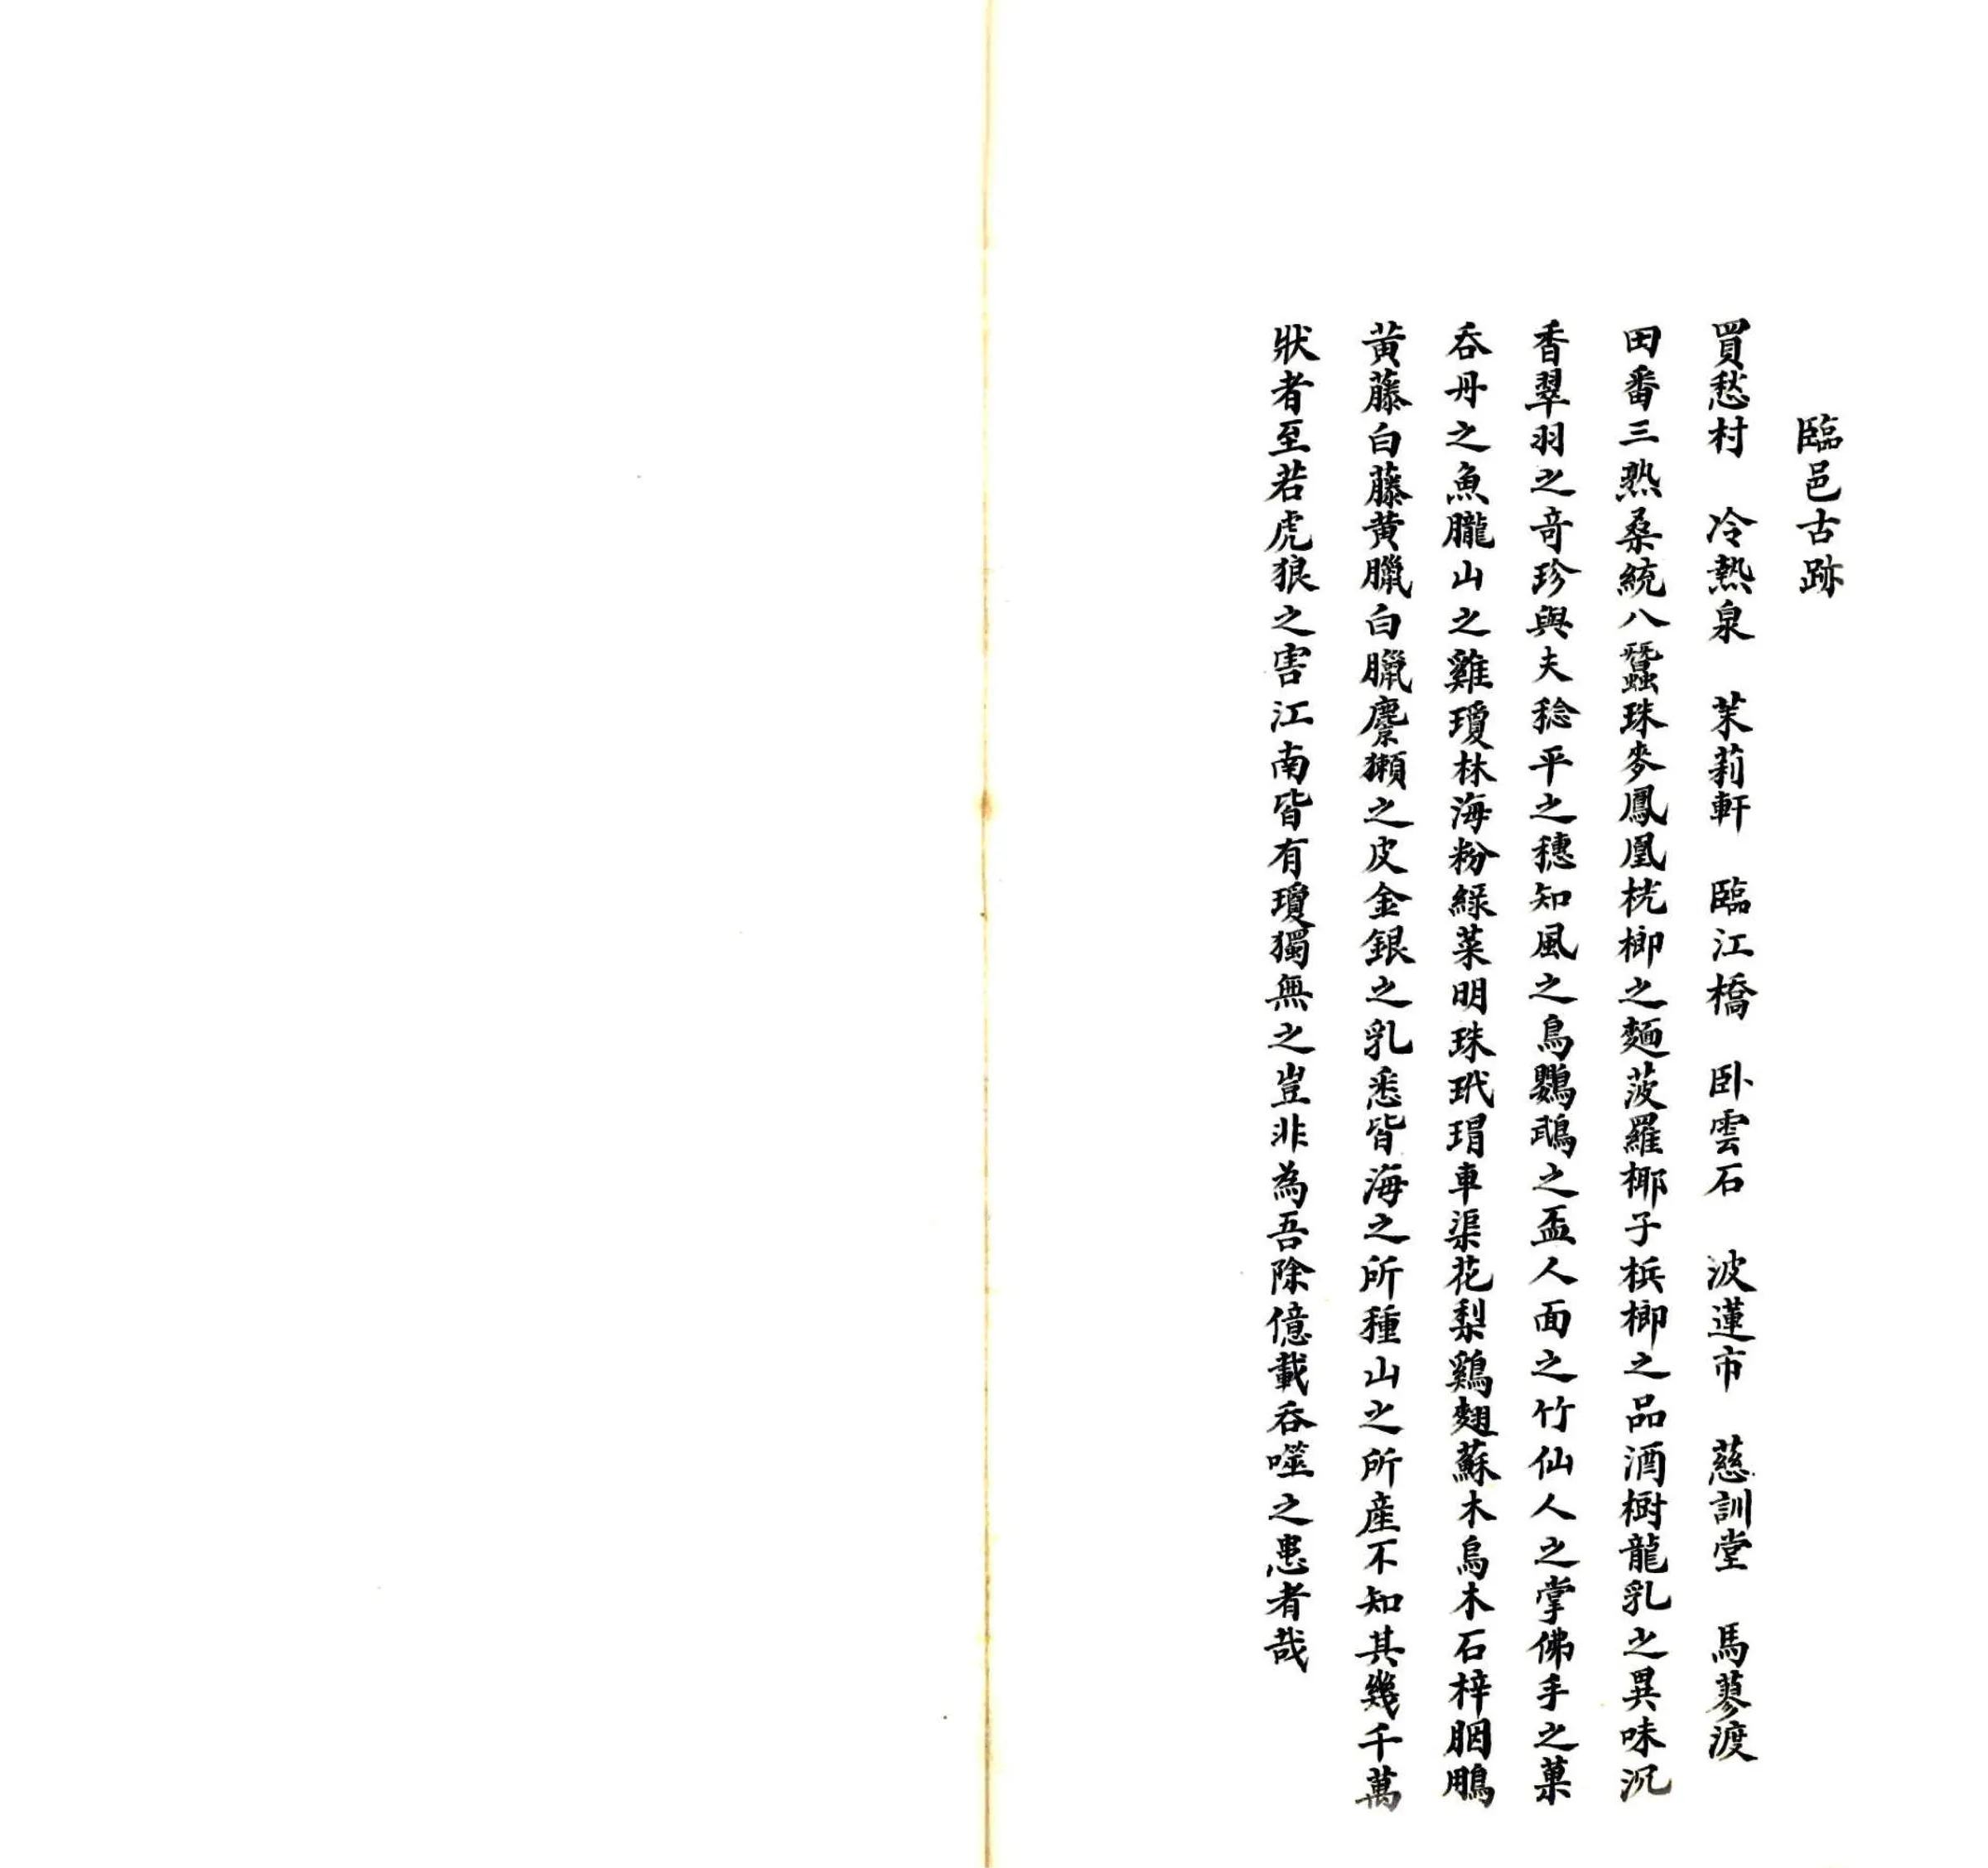 臨邑古跡
買愁村　冷熱泉　茉莉軒　臨江橋　卧雲石　波蓮市　慈訓堂　馬蓼渡
田畨三熟桑統八蠶珠麥鳳凰桄榔之麵菠羅椰子梹榔之品酒樹龍乳之異味沉
香翠羽之竒珍與夫稔平之穗知風之鳥鸚鵡之盃人面之竹仙人之掌佛手之菓
吞丹之魚朧山之雞瓊林海粉綠菜明珠玳瑁車渠花梨鷄翅蘇木烏木石梓胭鵰
黄藤白藤黄臘白臘麖獺之皮金銀之乳悉皆海之所種山之所産不知其幾千萬
狀者至若虎狼之害江南皆有瓊獨無之豈非為吾除億載吞噬之患者哉